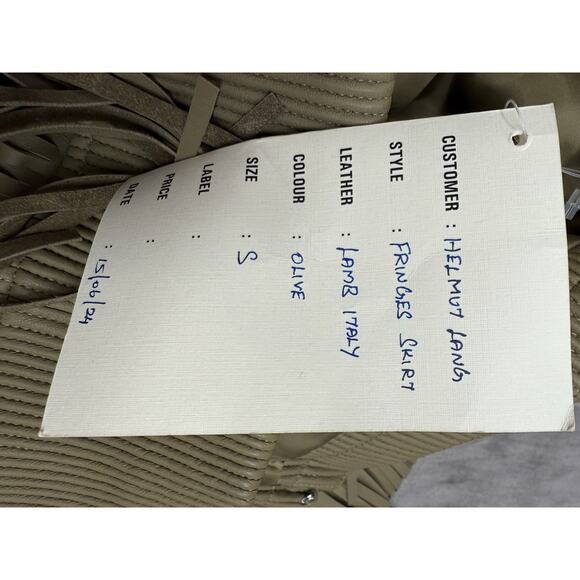 CUSTOMER : HELMUT LANG
STYLE : FRINGES SKIRT
LEATHER : LAMB ITALY
COLOUR : OLIVE
SIZE : S
LABEL :
PRICE :
DATE : 15/06/24